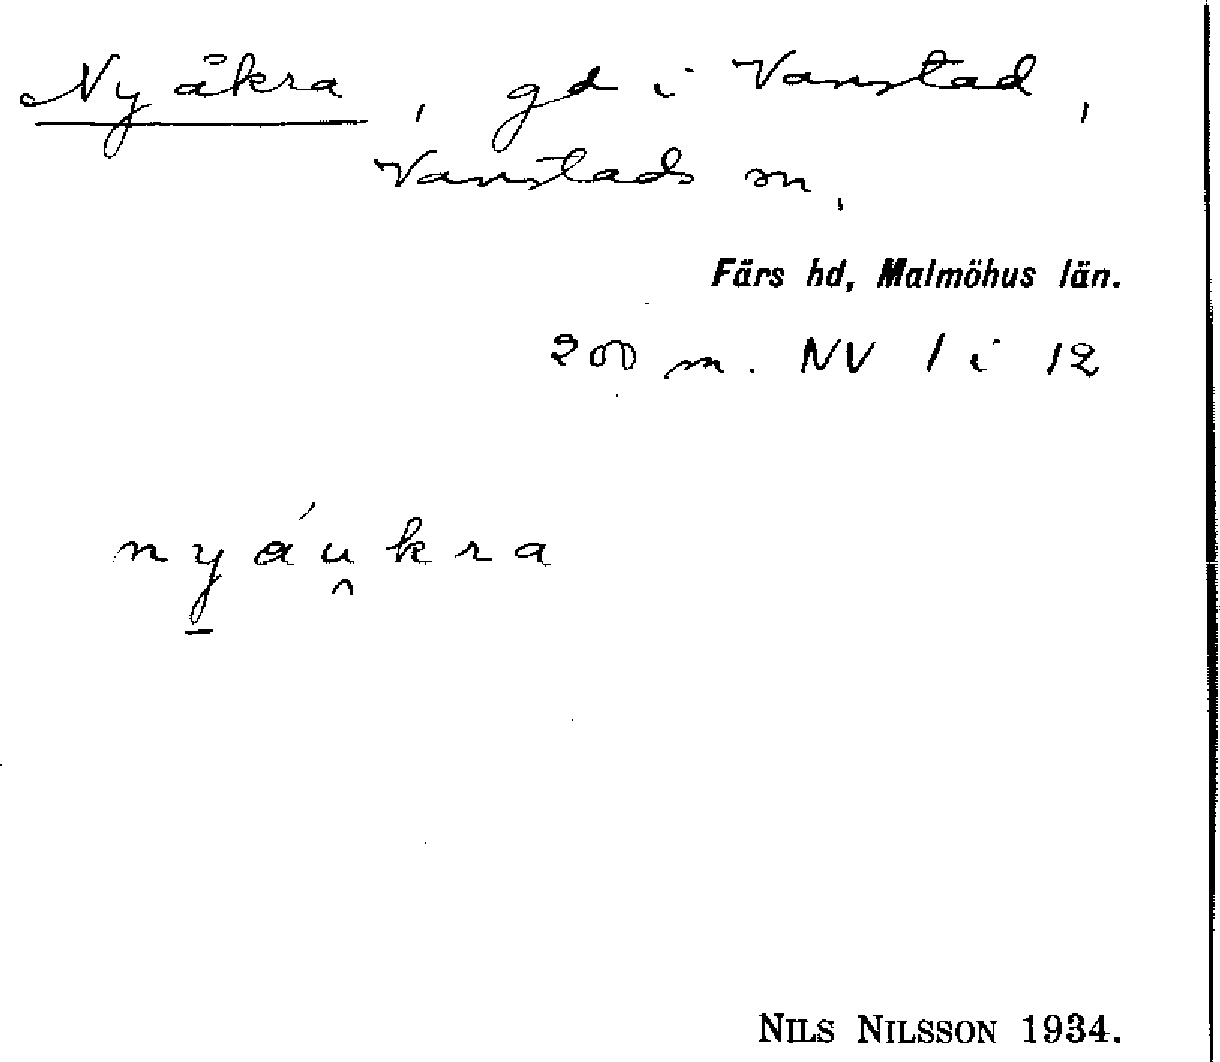 Nyåkra, gd i Vanstad,
Vanstads sn,
Färs hd, Malmöhus län.
200 m. NV 1 i 12
ny̱áu̯kra
NILS NILSSON 1934.